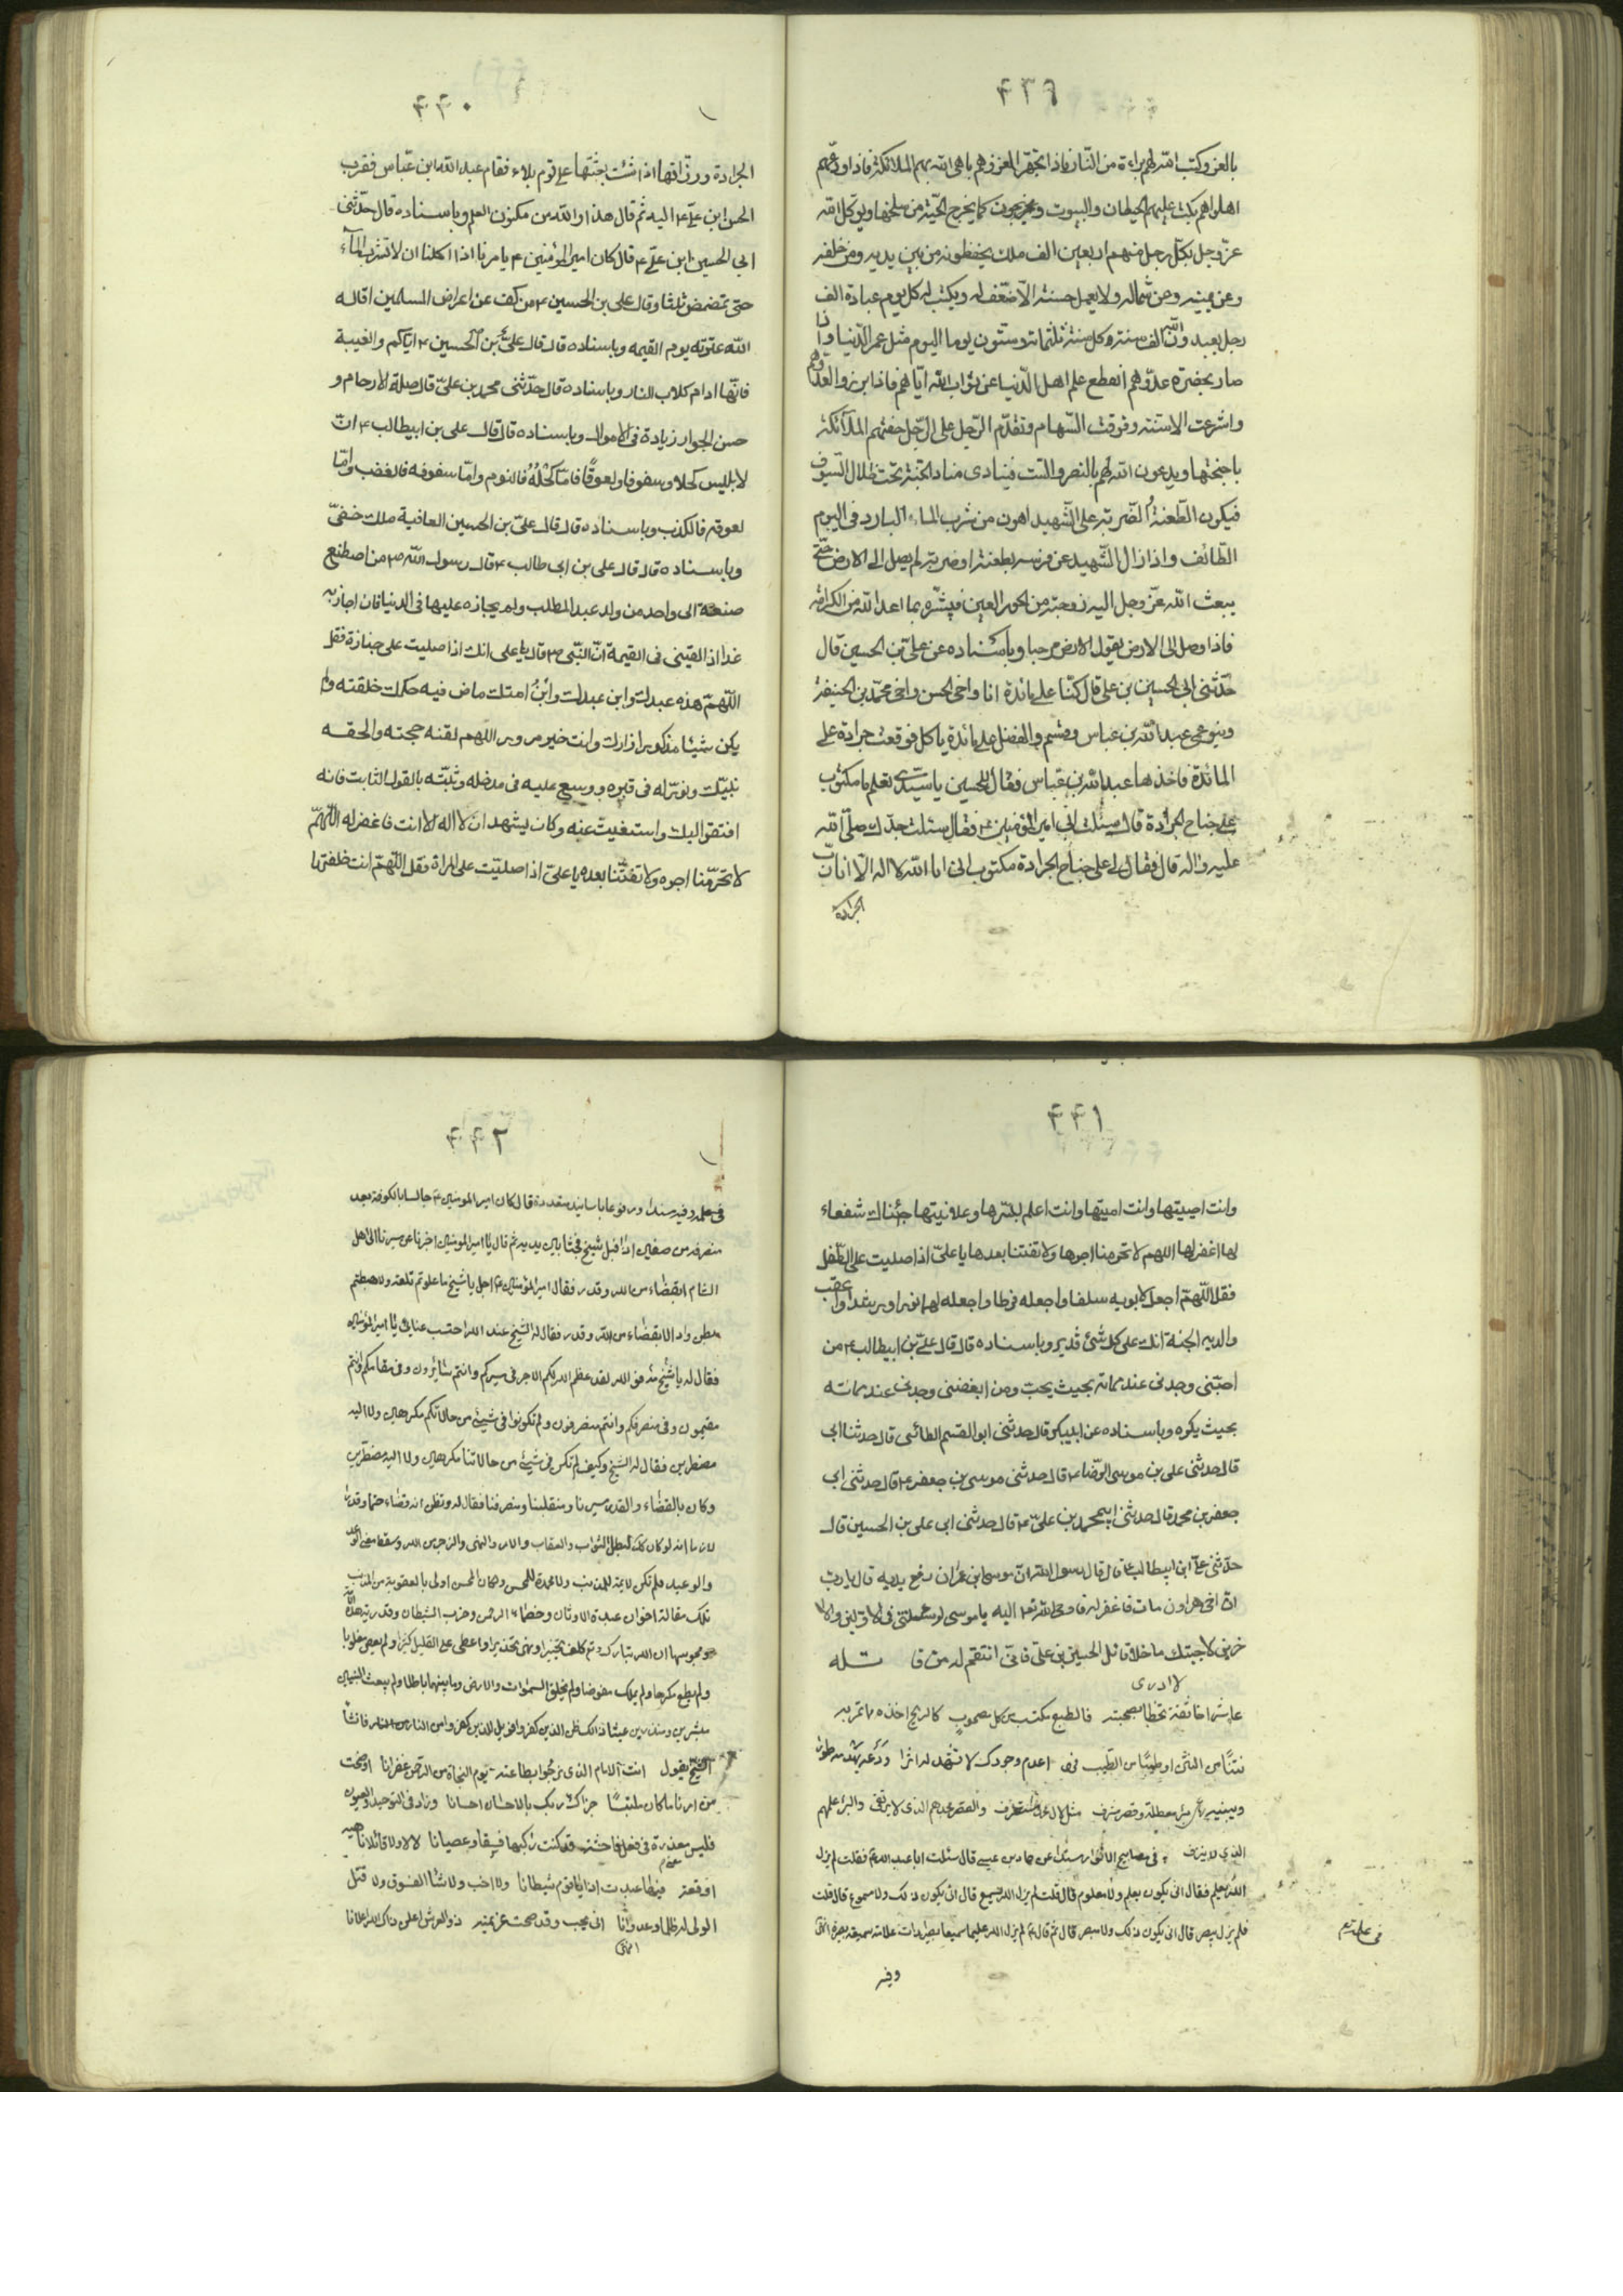 ۴۳۹
بالعزو كتب الله لهم براءة من النار فاذا تجهزوا لغزوهم باهى الله بهم الملائكة فاذا ودعهم
اهلوهم بكت عليهم الحيطان والبيوت ويخرجون كما يخرج الحية من سلخها ويوكل الله
عز وجل بكل رجل منهم اربعين الف ملك يحفظونه من بين يديه ومن خلفه
وعن يمينه وعن شماله ولا يعمل حسنة الا ضعف له ويكتب له كل يوم عبادة الف
رجل يعبدون الله الف سنة وكل سنة ثلثمائة وستون يوما اليوم مثل عمر الدنيا واذا
صار بحضرة عدوهم انقطع علم اهل الدنيا عن ثواب الله اياهم فاذا برزوا لعدوهم
واشرعت الاسنة وفوقت السهام وتقدم الرجل على الرجل حفتهم الملائكة
باجنحتها ويدعون الله لهم بالنصر والتثبت فينادى مناد الجنة تحت ظلال السيوف
فيكون الطعنة والضربة على الشهيد اهون من شرب الماء البارد فى اليوم
الطائف واذا زال الشهيد عن فرسه بطعنة او ضربة لم يصل الى الارض حتى
يبعث الله عز وجل اليه زوجته من الحور العين فيبشره بما اعد الله من الكرامة
فاذا وصل الى الارض يقول الارض مرحبا وباسناده عن على بن الحسين قال
حدثنى ابى الحسين بن على قال كنا على مائدة انا واخى الحسن واخى محمد بن الحنيفة
وبنو عمى عبد الله بن عباس وقثم والفضل على مائدة ياكل فوقعت جرادة على
المائدة فاخذها عبد الله بن عباس فقال للحسين يا سيدى تعلم ما مكتوب
على جناح الجرادة قال سئلت ابى امير المؤمنين ع فقال سئلت جدك صلى الله
عليه واله قال فقال لى على جناح الجرادة مكتوب انى انا الله لا اله الا انا رب
الجرادة
۴۴۰
الجرادة ورزاقها اذا شئت بعثتها على قوم بلاء فقام عبد الله ابن عباس فقرب
الحسن ابن على ع اليه ثم قال هذا والله من مكنون العلم وباسناده قال حدثنى
ابى الحسين ابن على ع قال كان امير المؤمنين ع يامرنا اذا اكلنا ان لا نشرب الماء
حتى نتمضمض ثلثا وقال على بن الحسين ع من كف عن اعراض المسلمين اقاله
الله عثرته يوم القيمه وباسناده قال قال على بن الحسين ع اياكم والغيبة
فانها ادام كلاب النار وباسناده قال حدثنى محمد بن على قال صلة الارحام و
حسن الجوار زيادة فى الاموال وباسناده قال قال على بن ابيطالب ع ان
لابليس كحلا وسفوفا ولعوقا فاما كحله فالنوم واما سفوفه فالغضب واما
لعوقه فالكذب وباسناده قال قال على بن الحسين العافية ملك خفى
وباسناده قال قال على بن ابى طالب ع قال رسول الله ص من اصطنع
صنعة الى واحد من ولد عبد المطلب ولم يجازه عليها فى الدنيا فان اجازيه
غدا اذا لقينى فى القيمة ان النبى ص قال يا على انك اذا صليت على جنازة فقل
اللهم هذه عبدك وابن عبدك وابن امتك ماض فيه حكمك خلقته ولم
يكن شيئا مذكورا زارك وانت خير مزور اللهم لقنه حجته والحقه
بنبيك ونور له فى قبره ووسع عليه فى مدخله وثبته بالقول الثابت فانه
افتقر اليك واستغنيت عنه وكان يشهد ان لا اله الا انت فاغفر له اللهم
لا تحرمنا اجره ولا تفتنا بعده يا على اذا صليت على المراة فقل اللهم انت خلقتها
۴۴۱
وانت احييتها وانت امتيتها وانت اعلم بسرها وعلانيتها جئناك شفعاء
لها اغفر لها اللهم لا تحرمنا اجرها ولا تفتنا بعدها يا على اذا صليت على الطفل
فقل اللهم اجعل لابويه سلفا واجعله فرطا واجعله لهما نورا ورشدا واعقب
والديه الجنة انك على كل شئ قدير وباسناده قال قال على بن ابيطالب ع من
احبنى وجدنى عند مماته بحيث يحب ومن ابغضنى وجدنى عند مماته
بحيث يكره وباسناده عن ابيبكر قال حدثنى ابو القسم الطائى قال حدثنا ابى
قال حدثنى على بن موسى الرضا ع قال حدثنى موسى بن جعفر ع قال حدثنى ابى
جعفر بن محمد قال حدثنى ابى محمد بن على ع قال حدثنى ابى على بن الحسين قال
حدثنى على ابن ابيطالب ع قال قال رسول الله ان موسى ابن عمران رفع يديه قال يا رب
ان اخى هرون مات فاغفر له فاوحى الله تع اليه يا موسى لو سئلتنى فى الاولين والا
خرين لاجبتك ما خلا قاتل الحسين بن على فانى انتقم له من قا تله
لا ادرى
عاشر اخا ثقة تحظى بصحبته فالطبع مكتسب من كل مصحوب كالريح اخذه مما تمر به
نتنا من النتن او طيبا من الطيب
وبئر معطلة وقصر مشرف
الذى لا ينزف فى مصابيح الانوار مسندا عن حماد بن عيسى قال سئلت ابا عبد الله ع فقلت لم يزل
الله يعلم فقال انى يكون يعلم ولا معلوم قال قلت لم يزل الله يسمع قال انى يكون ذلك ولا مسموع قال قلت
فلم يزل يبصر قال انى يكون ذلك ولا مبصر قال ثم قال ع لم يزل الله عليما سميعا بصيرا ذات علامة سميعة بصيرة انتهى
وفيه
۴۴۲
وفيه مسندا ومرفوعا باسانيد متعددة قال كان امير المومنين ع جالسا بالكوفة بعد
منصرفه من صفين اذ اقبل شيخ فجثا بين يديه ثم قال يا امير المومنين اخبرنا عن مسيرنا الى اهل
الشام ابقضاء من الله وقدر فقال امير المؤمنين ع اجل يا شيخ ما علوتم تلعة ولا هبطتم
بطن واد الا بقضاء من الله وقدر فقال له الشيخ عند الله احتسب عنائى يا امير المؤمنين
فقال له يا شيخ فوالله لقد عظم الله لكم الاجر فى مسيركم وانتم سائرون وفى مقامكم وانتم
مقيمون وفى منصرفكم وانتم منصرفون ولم تكونوا فى شئ من حالاتكم مكرهين ولا اليه
مضطرين فقال له الشيخ وكيف لم نكن فى شئ من حالاتنا مكرهين ولا اليه مضطرين
وكان بالقضاء والقدر مسيرنا ومنقلبنا ومنصرفنا فقال له وتظن انه قضاء حتما وقدرا
لازما انه لو كان كذلك لبطل الثواب والعقاب والامر والنهى والزجر من الله وسقط معنى الوعد
والوعيد فلم تكن لائمة للمذنب ولا محمدة للمحسن ولكان المحسن اولى بالعقوبة من المذنب
تلك مقالة اخوان عبدة الاوثان وخصماء الرحمن وحزب الشيطان وقدرية هذه الامة
ومجوسها ان الله تبارك وتع كلف تخييرا ونهى تحذيرا واعطى على القليل كثيرا ولم يعص مغلوبا
ولم يطع مكرها ولم يملك مفوضا ولم يخلق السموات والارض وما بينهما باطلا ولم يبعث النبيين
مبشرين ومنذرين عبثا ذلك ظن الذين كفروا فويل للذين كفروا من النار فانشأ
الشيخ يقول انت الامام الذى نرجو بطاعته يوم النجاة من الرحمن غفرانا اوضحت
من امرنا ما كان ملتبسا جزاك ربك بالاحسان احسانا
فليس معذرة فى فعل فاحشة قد كنت راكبها فسقا وعصيانا لا لا ولا قائلا ناهيه
اوقعه فيها عبدت اذا يا قوم شيطانا ولا احب ولا شاء الفسوق ولا قتل
الولى له ظلما وعدوانا انى يحب وقد صحت عزيمته ذو العرش اعلن ذاك الله اعلانا
انتهى